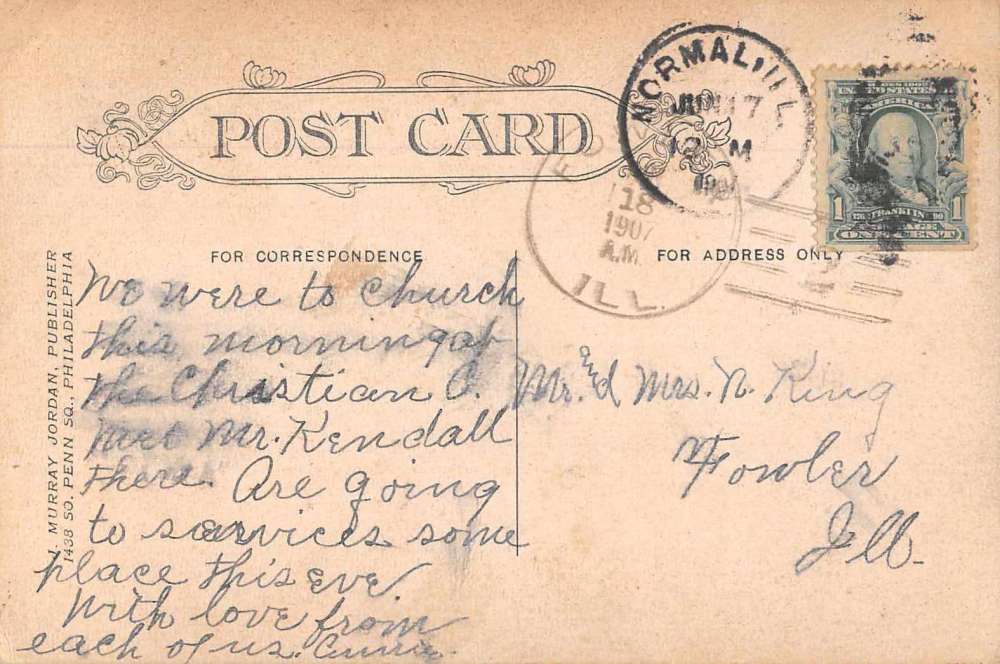 POST CARD
NORMAL, ILL.
JUN 17
12 M
18
1907
A.M.
ILL.
UNITED STATES
AMERICA
1 FRANKLIN 1
ONE CENT
FOR CORRESPONDENCE
FOR ADDRESS ONLY
J. MURRAY JORDAN, PUBLISHER
1438 SO. PENN SQ., PHILADELPHIA
We were to church
this morning at
the Christian C.
met Mr. Kendall
there. Are going
to services some
place this eve.
With love from
each of us.
Mr. & Mrs. N. King
Fowler
Ill.